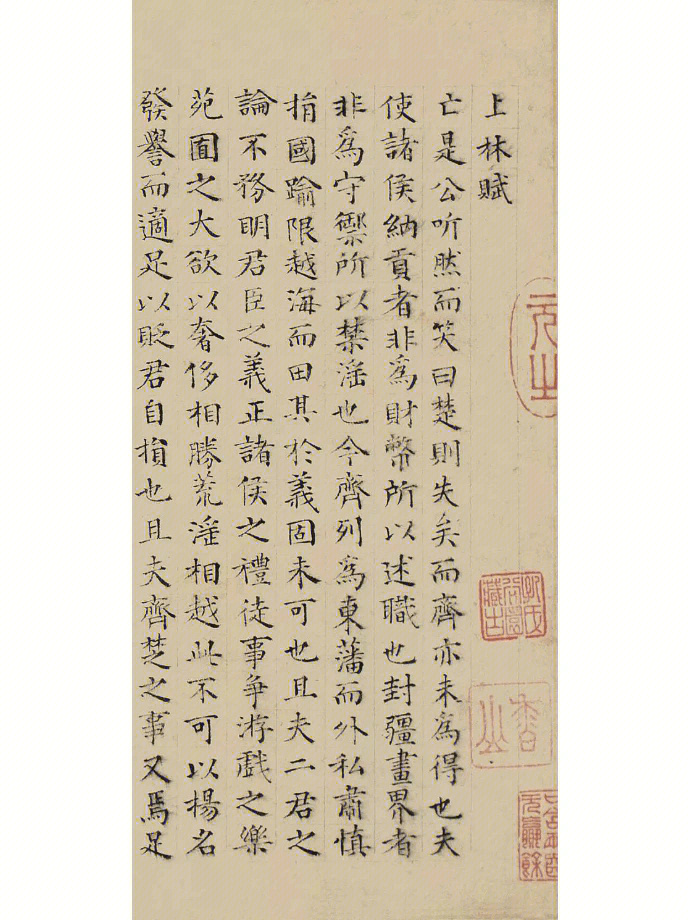 上林賦
亡是公听然而笑曰楚則失矣而齊亦未爲得也夫
使諸侯納貢者非爲財幣所以述職也封疆畫界者
非爲守禦所以禁淫也今齊列爲東藩而外私肅慎
捐國踰限越海而田其於義固未可也且夫二君之
論不務眀君臣之義正諸侯之禮徒事爭游戲之樂
苑囿之大欲以奢侈相勝荒淫相越此不可以楊名
發譽而適足以貶君自損也且夫齊楚之事又焉足